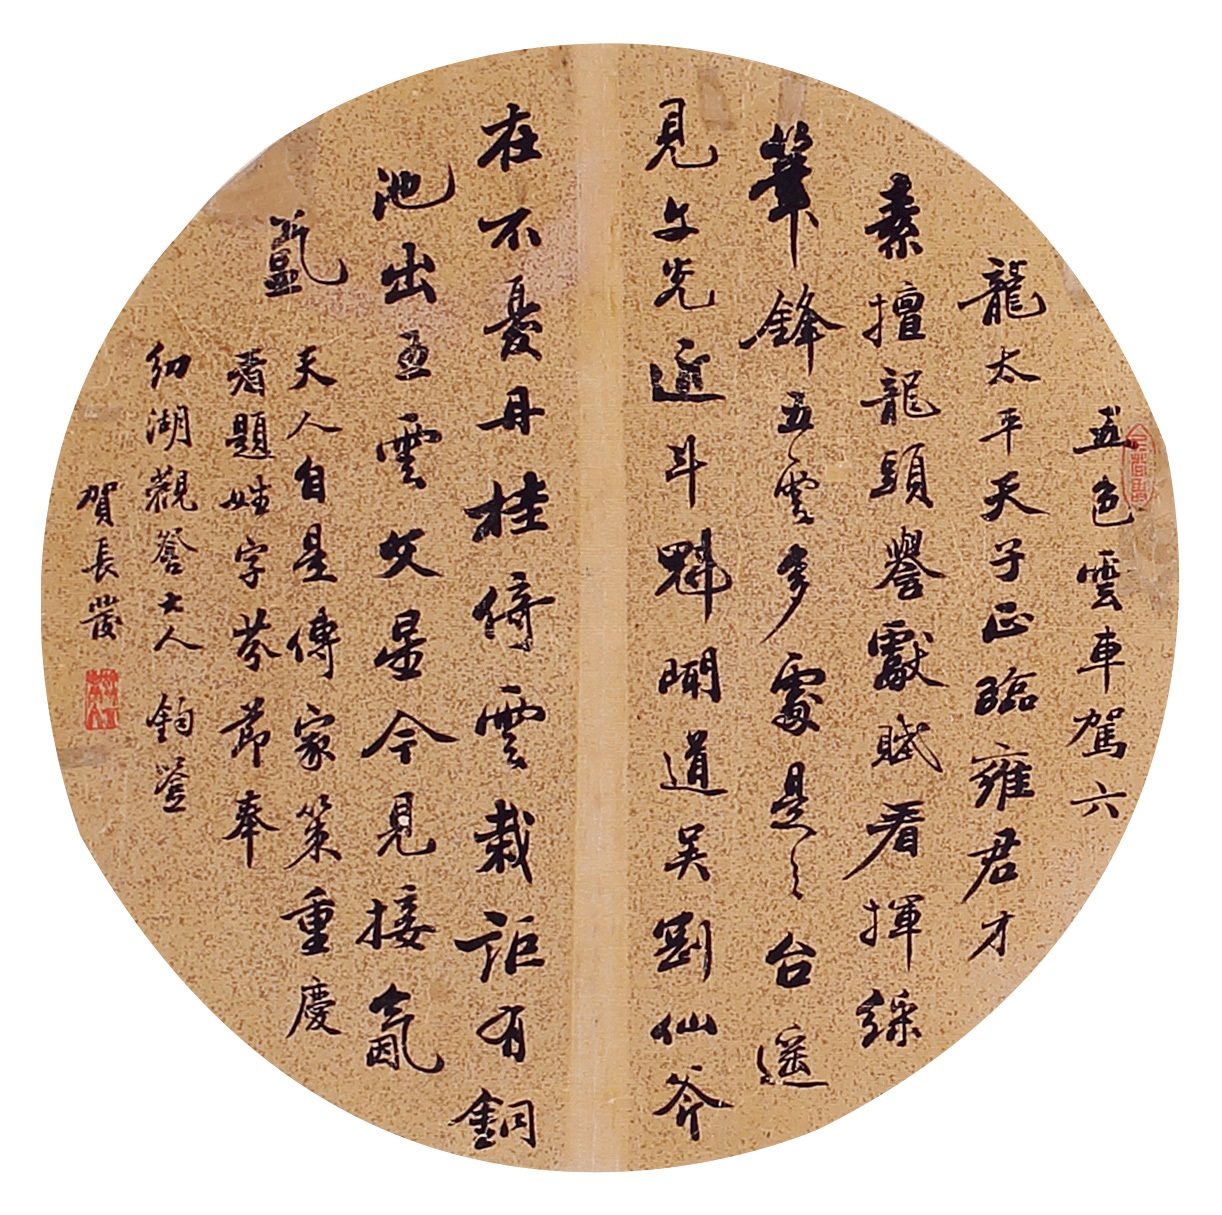 五色雲車駕六
龍太平天子正臨雍君才
素擅龍頭譽獻賦看揮綵
筆鋒五雲多處是々台遥
見文光近斗魁聞道吴剛仙斧
在不憂丹桂倚雲栽詎有銅
池出五雲文星今見接氤
氲天人自是傳家策重慶
看題姓字芬節奉
幼湖觀詧大人鈞鑒
賀長齡